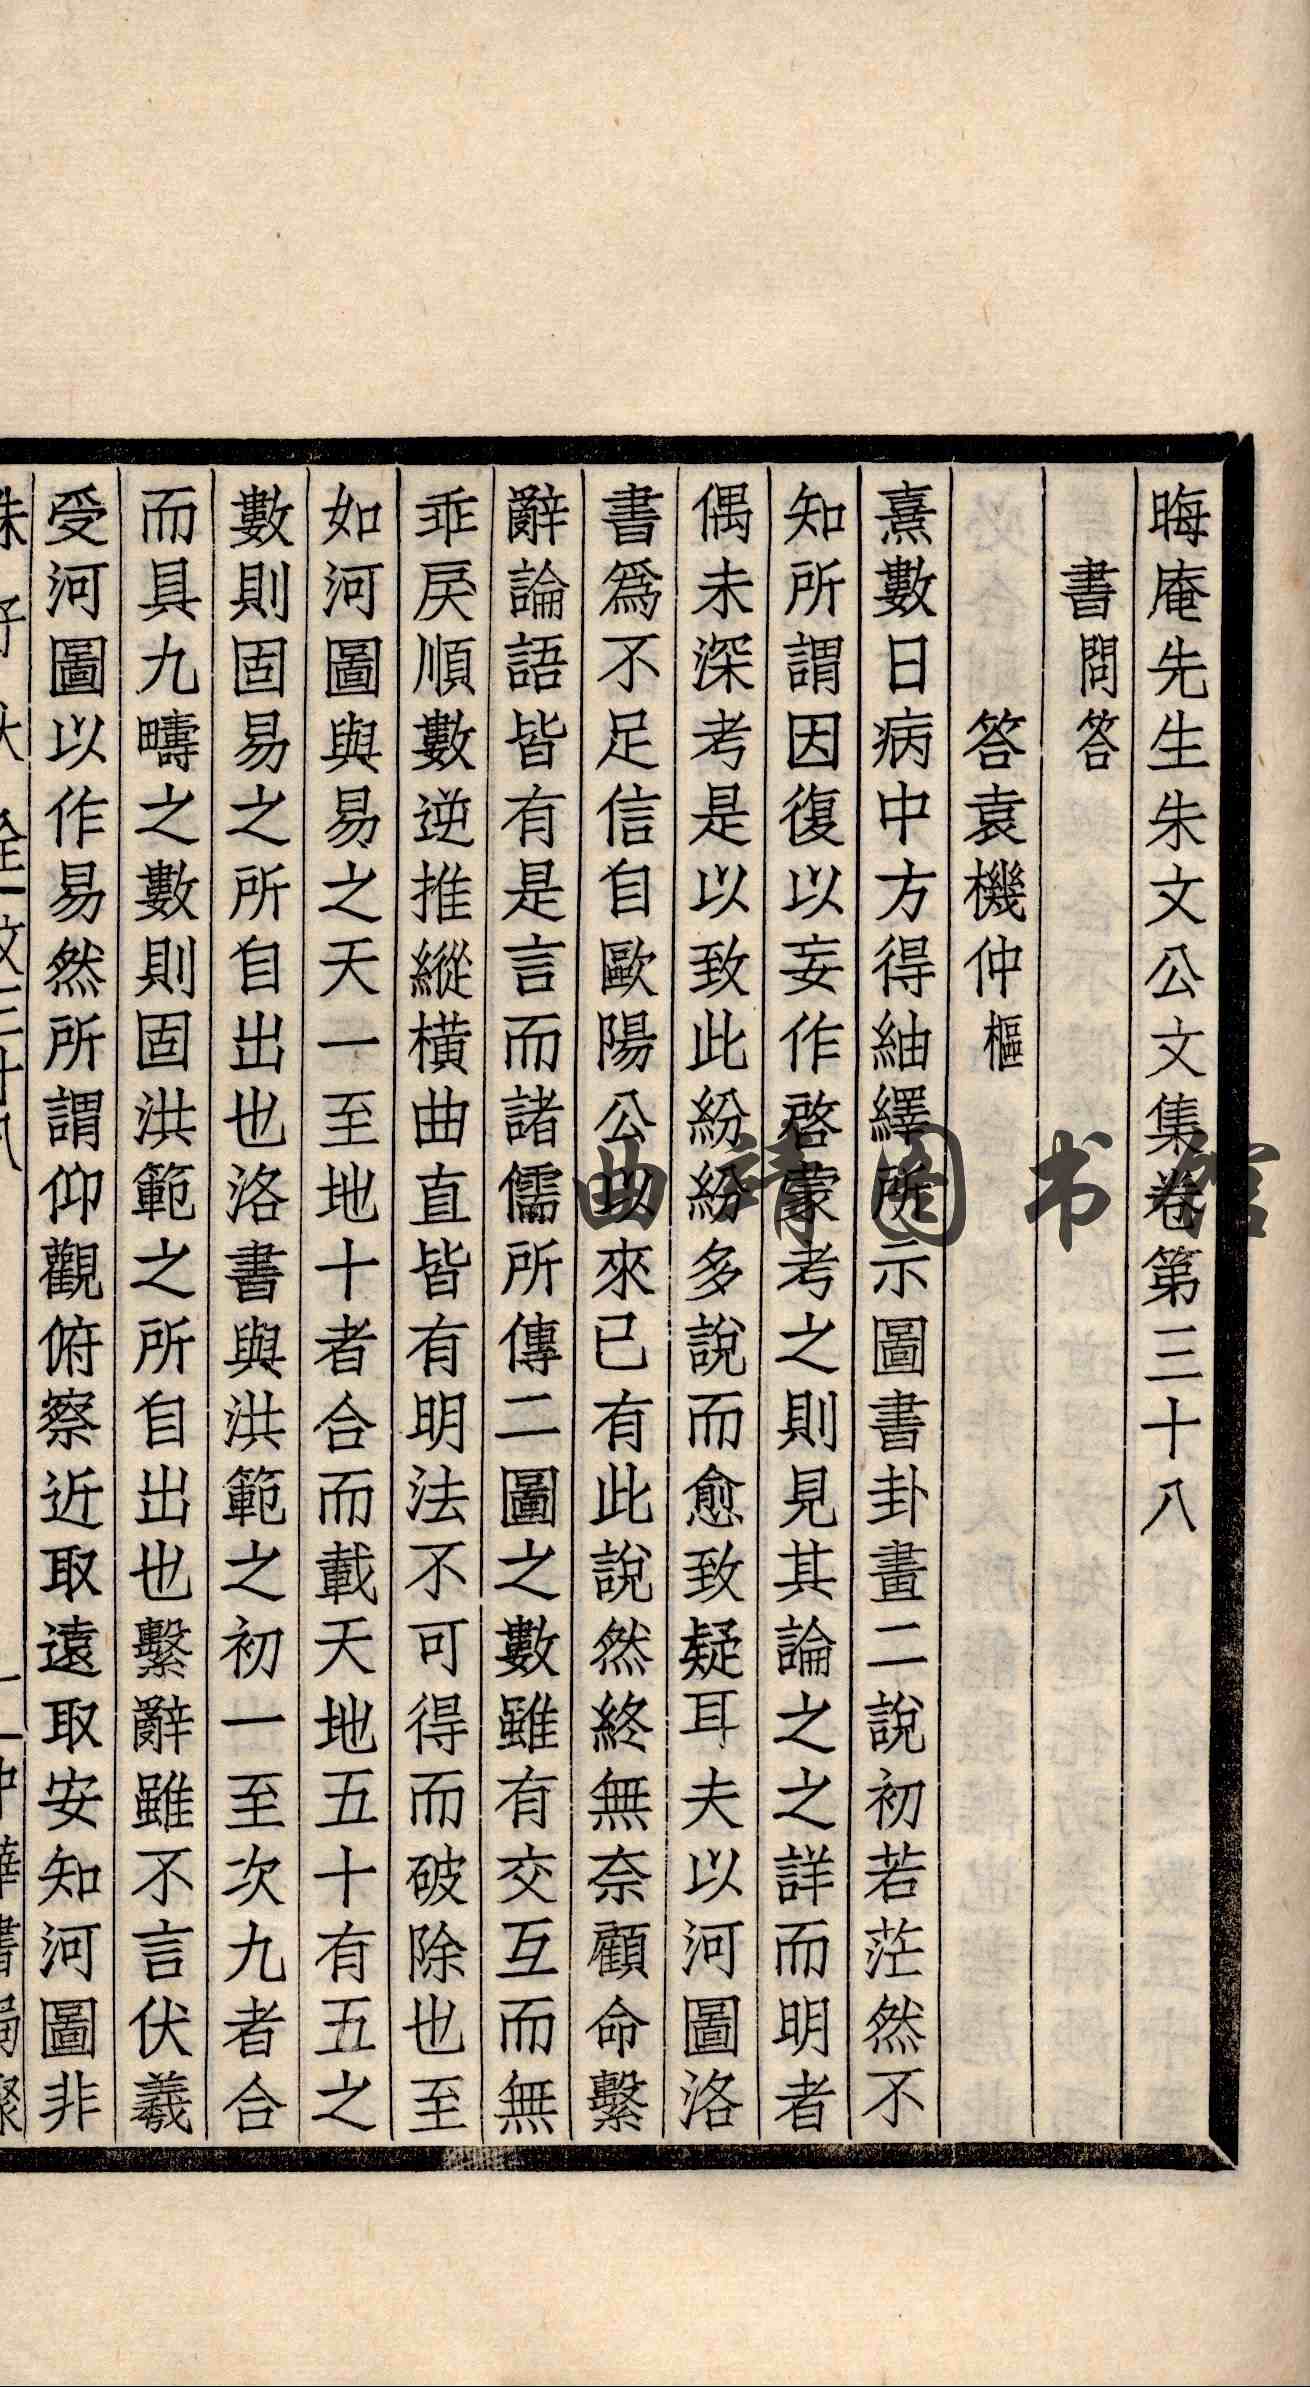 晦庵先生朱文公文集卷第三十八
書問答
答袁機仲樞
熹數日病中方得紬繹所示圖書卦畫二說初若茫然不
知所謂因復以妄作啓蒙考之則見其論之之詳而明者
偶未深考是以致此紛紛多說而愈致疑耳夫以河圖洛
書爲不足信自歐陽公以來已有此說然終無奈顧命繫
辭論語皆有是言而諸儒所傳二圖之數雖有交互而無
乖戾順數逆推縱橫曲直皆有明法不可得而破除也至
如河圖與易之天一至地十者合而載天地五十有五之
數則固易之所自出也洛書與洪範之初一至次九者合
而具九疇之數則固洪範之所自出也繫辭雖不言伏羲
受河圖以作易然所謂仰觀俯察近取遠取安知河圖非
朱子大全 文三十八
一 中華書局聚
曲靖图书馆